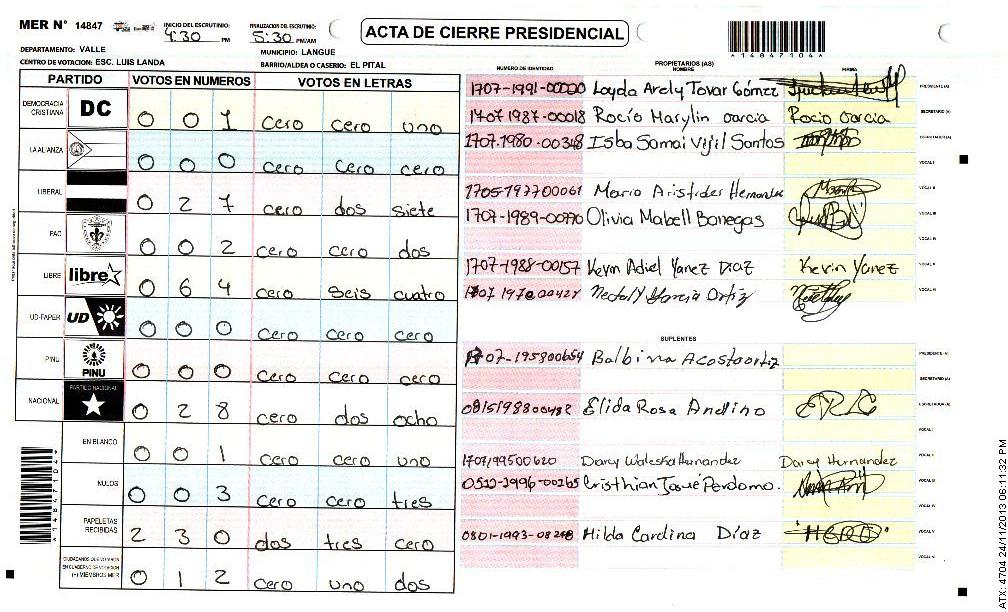 MER N° 14847 INICIO DEL ESCRUTINIO: 4:30 PM FINALIZACION DEL ESCRUTINIO: 5:30 PM/AM ACTA DE CIERRE PRESIDENCIAL *14847104*
DEPARTAMENTO: VALLE MUNICIPIO: LANGUE
CENTRO DE VOTACION: ESC. LUIS LANDA BARRIO/ALDEA O CASERIO: EL PITAL
PARTIDO VOTOS EN NUMEROS VOTOS EN LETRAS
DEMOCRACIA CRISTIANA DC 0 0 1 cero cero uno
LA ALIANZA 0 0 0 cero cero cero
LIBERAL 0 2 7 cero dos siete
PAC 0 0 2 cero cero dos
LIBRE libre 0 6 4 cero seis cuatro
UD-FAPER UD 0 0 0 cero cero cero
PINU PINU 0 0 0 cero cero cero
NACIONAL PARTIDO NACIONAL 0 2 8 cero dos ocho
EN BLANCO 0 0 1 cero cero uno
NULOS 0 0 3 cero cero tres
PAPELETAS RECIBIDAS 2 3 0 dos tres cero
CIUDADANOS QUE VOTARON EN CUADERNO DE VOTACION (+) MIEMBROS MER 0 1 2 cero uno dos
*14847104*
PROPIETARIOS (AS)
NUMERO DE IDENTIDAD NOMBRE FIRMA
Loyda Arely Tovar Gómez PRESIDENTE (A)
1707-1987-00018 Rocío Marylin Garcia Rocio Garcia SECRETARIO (A)
1707-1980-00348 Isba Samai Vijil Santos ESCRUTADOR (A)
VOCAL I
1705-197700061 Mario Aristides Hernandez VOCAL II
1707-1989-00770 Olivia Mabell Banegas VOCAL III
VOCAL IV
1707-1988-00157 Kevin Adiel Yanez Diaz Kevin Yanez VOCAL V
Garcia Ortiz VOCAL VI
SUPLENTES
1707-195800654 Balbina Acosta ortiz PRESIDENTE (A)
SECRETARIO (A)
0815198800482 Elida Rosa Andino ESCRUTADOR (A)
VOCAL I
1707199500620 Darcy Waleska Hernandez Darcy Hernandez VOCAL II
0510-1996-00265 Cristhian Josué Perdomo. VOCAL III
VOCAL IV
0801-1993-08248 Hilda Carolina Díaz VOCAL V
VOCAL VI
ATX: 4704 24/11/2013 06:11:32 PM